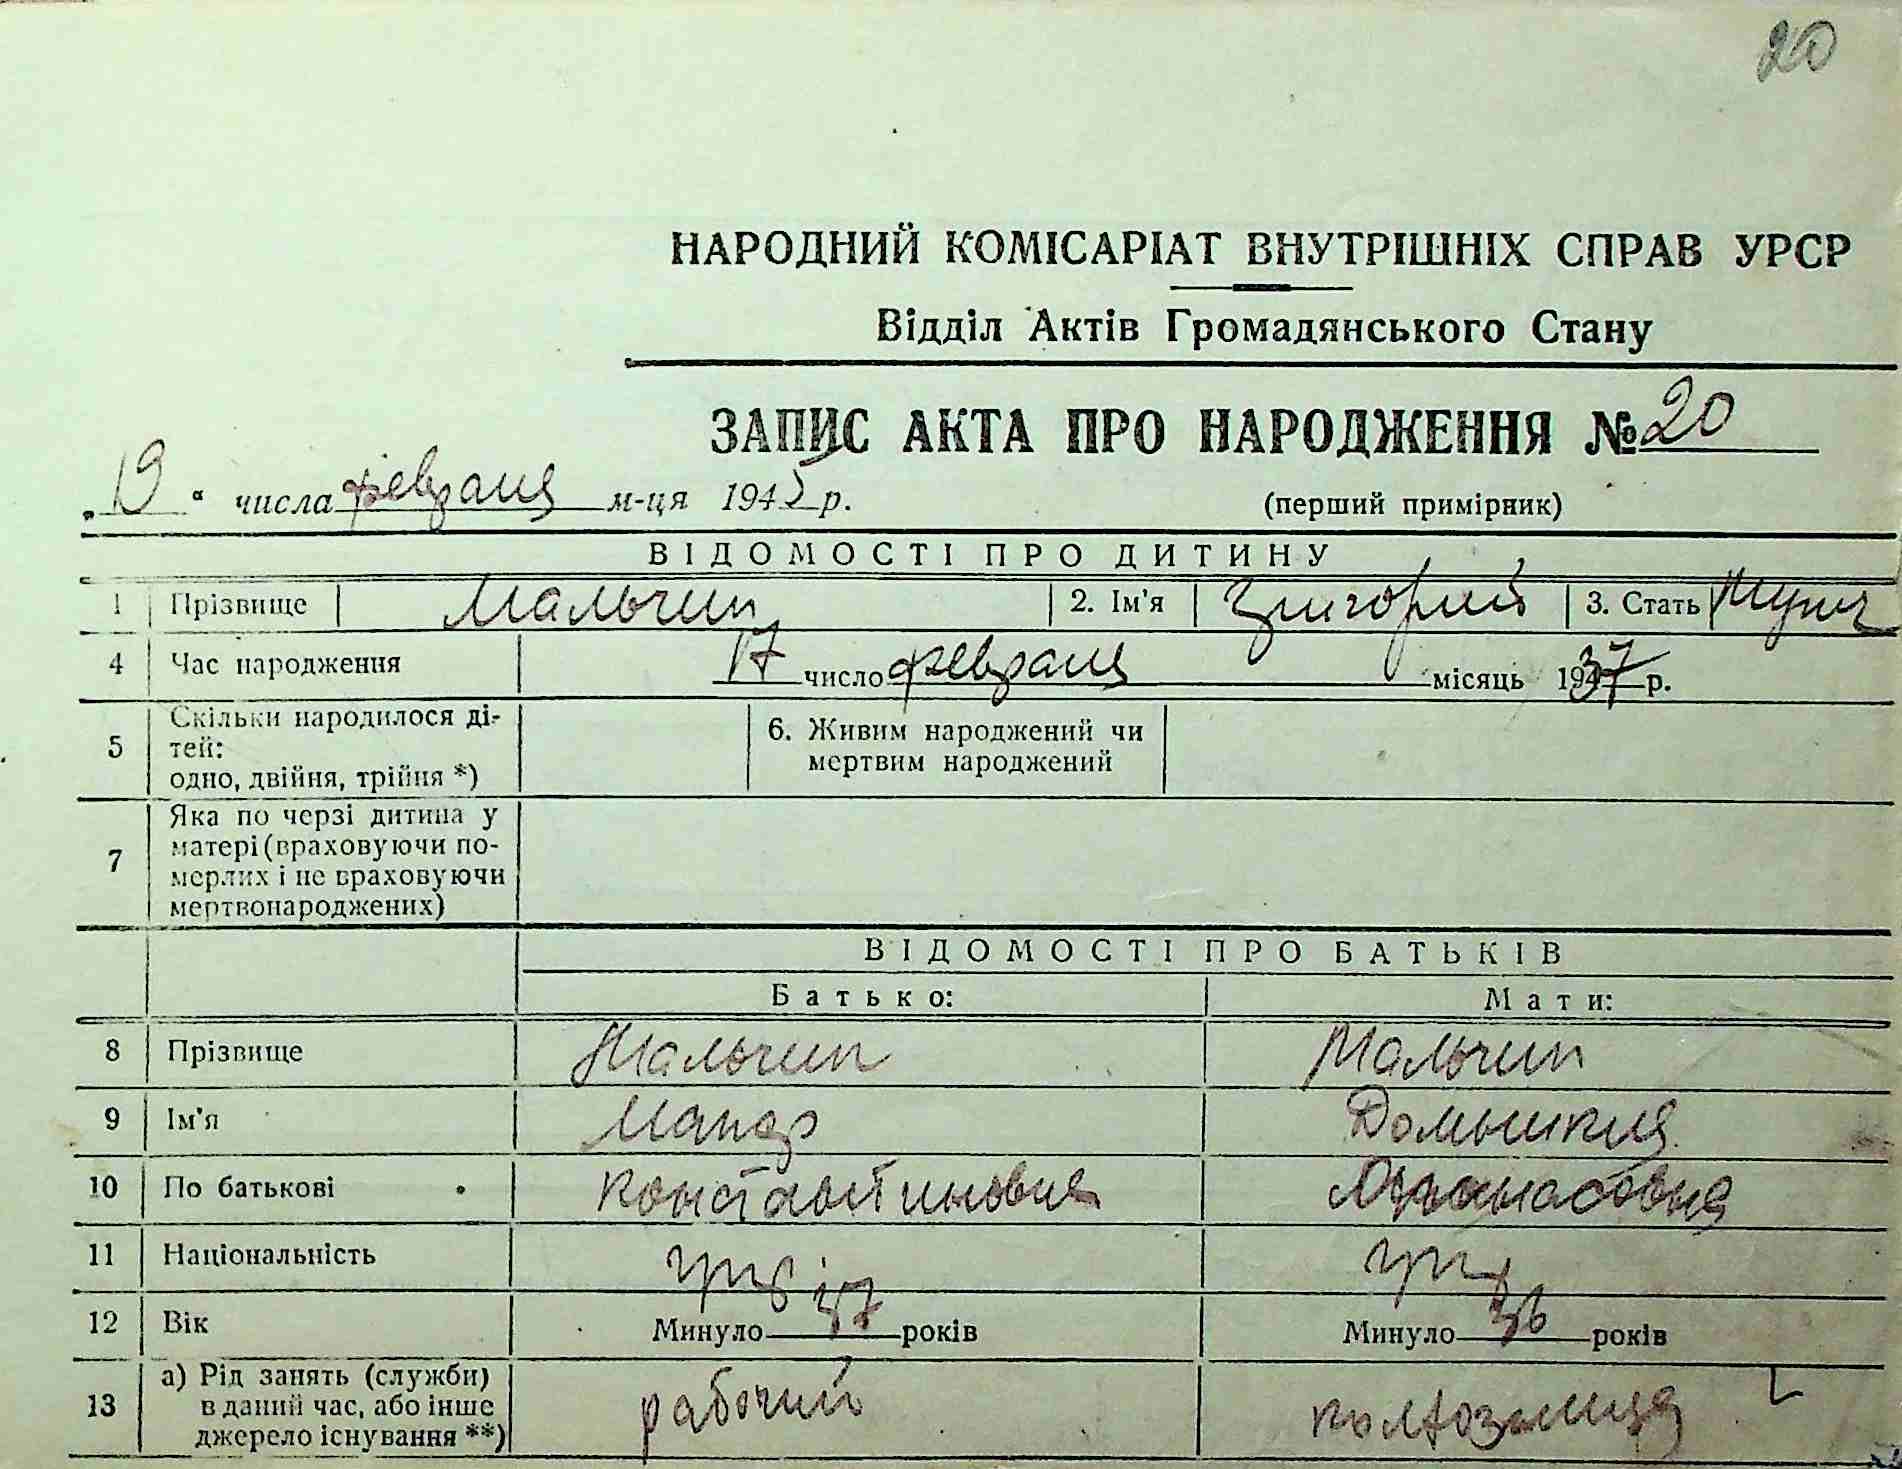 20
НАРОДНИЙ КОМІСАРІАТ ВНУТРІШНІХ СПРАВ УРСР
Відділ Актів Громадянського Стану
ЗАПИС АКТА ПРО НАРОДЖЕННЯ № 20
„19“ числа февраля м-ця 1945 р. (перший примірник)
ВІДОМОСТІ ПРО ДИТИНУ
1 Прізвище Мальчин 2. Ім'я Григорий 3. Стать Мужч
4 Час народження 17 число февраля місяць 1937 р.
5 Скільки народилося ді-
тей:
одно, двійня, трійня *)
6. Живим народжений чи
мертвим народжений
7 Яка по черзі дитина у
матері (враховуючи по-
мерлих і не враховуючи
мертвонароджених)
ВІДОМОСТІ ПРО БАТЬКІВ
Батько: Мати:
8 Прізвище Мальчин Мальчин
9 Ім'я
10 По батькові Афанасовна
11 Національність
12 Вік Минуло 37 років Минуло 36 років
13 а) Рід занять (служби)
в даний час, або інше
джерело існування **)
рабочий колхозница